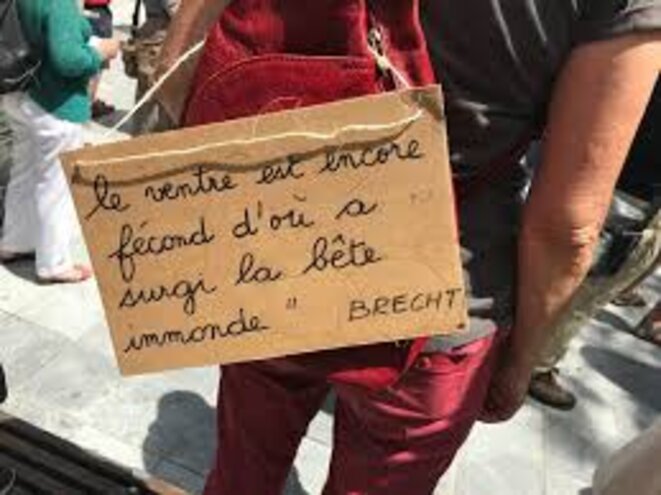 "le ventre est encore
fécond d'où a
surgi la bête
immonde" BRECHT